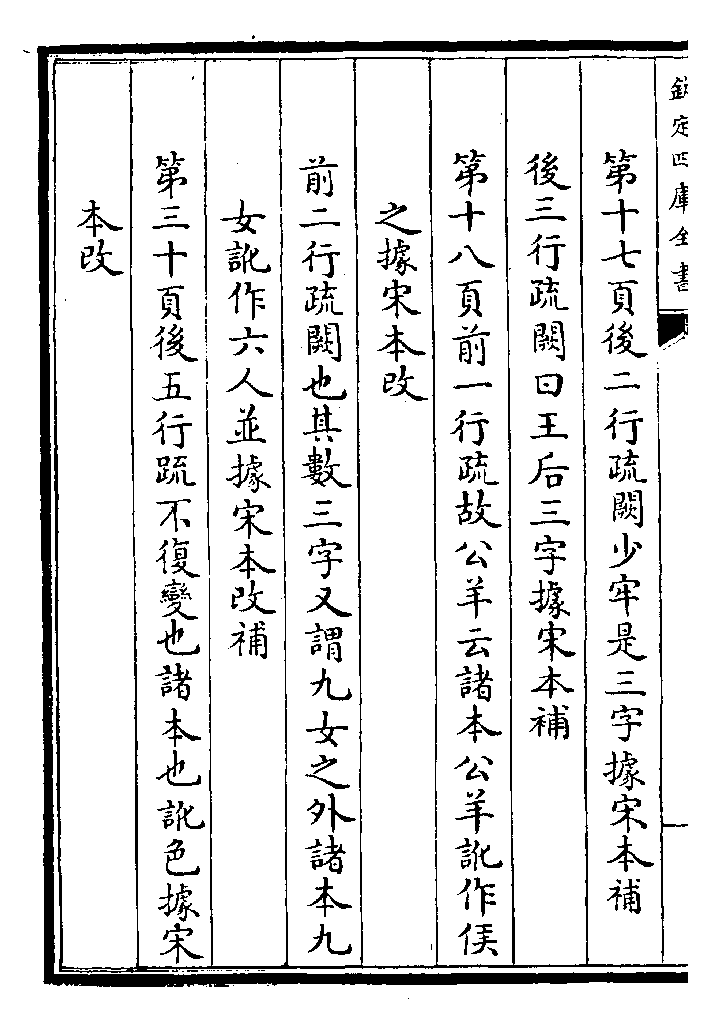 欽定四庫全書
第十七頁後二行疏闕少牢是三字據宋本補
後三行疏闕曰王后三字據宋本補
第十八頁前一行疏故公羊云諸本公羊訛作侯
之據宋本改
前二行疏闕也其數三字又謂九女之外諸本九
女訛作六人並據宋本改補
第三十頁後五行疏不復變也諸本也訛色據宋
本改